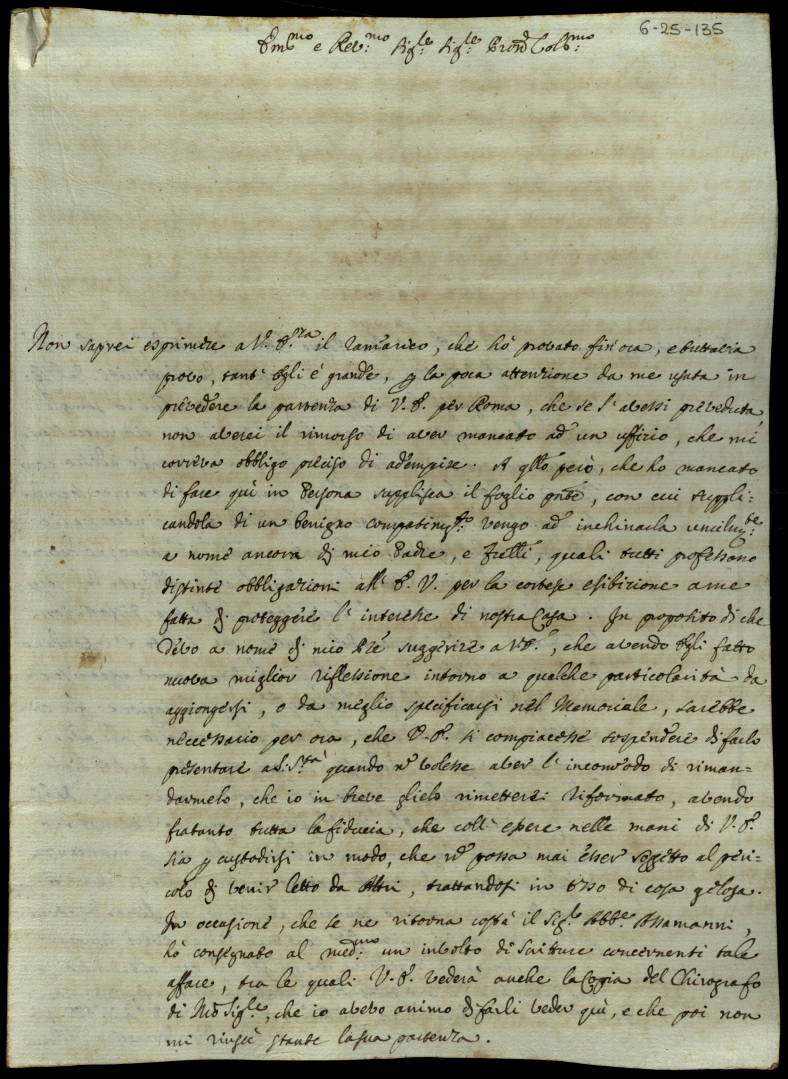 6-25-135
Em̃mo e Rev:mo Sig:le Sig:le Pron̄ Col:mo
Non saprei esprimere a V. E.za il ramarico, che hò provato fin'ora, e tuttavia
provo, tant'egli è grande, p la poca attenzione da me usata in
prevedere la partenza di V. E. per Roma, che se l'avessi preveduta,
non averei il rimorso di aver mancato ad un uffizio, che mi
correva obbligo preciso di adempire. A qllo però, che ho mancato
di fare quì in Persona supplisca il foglio pñte, con cui suppli=
candola di un benigno compatimto vengo ad inchinarla umilmte:
a nome ancora di mio Padre, e Frelli, quali tutti professano
distinte obbligazioni all'E. V. per la cortese esibizione a me
fatta di proteggere l'interesse di nostra Casa. In proposito di che
devo a nome di mio Pre suggerire a V. E., che avendo egli fatto
nuova miglior riflessione intorno a qualche particolarità da
aggiongersi, o da meglio specificarsi nel Memoriale, sarebbe
necessario per ora, che V. E. si compiacesse sospendere di farlo
presentare a S. Stà quando n̄ volesse aver l'incomodo di riman=
darmelo, che io in breve glielo rimetterei riformato, avendo
fratanto tutta la fiducia, che coll'essere nelle mani di V. E.
sia p custodirsi in modo, che n̄ possa mai esser soggetto al peri=
colo di venir letto da Altri, trattandosi in esso di cosa gelosa.
In occasione, che se ne ritorna costà il Sig:le Abb:e Assamanni,
hò consegnato al med:mo un involto di Scritture concernenti tale
affare, tra le quali V. E. vederà anche la Copia del Chirografo
di Sig:le, che io avevo animo di farli veder quì, e che poi non
mi riuscì stante la sua partenza.